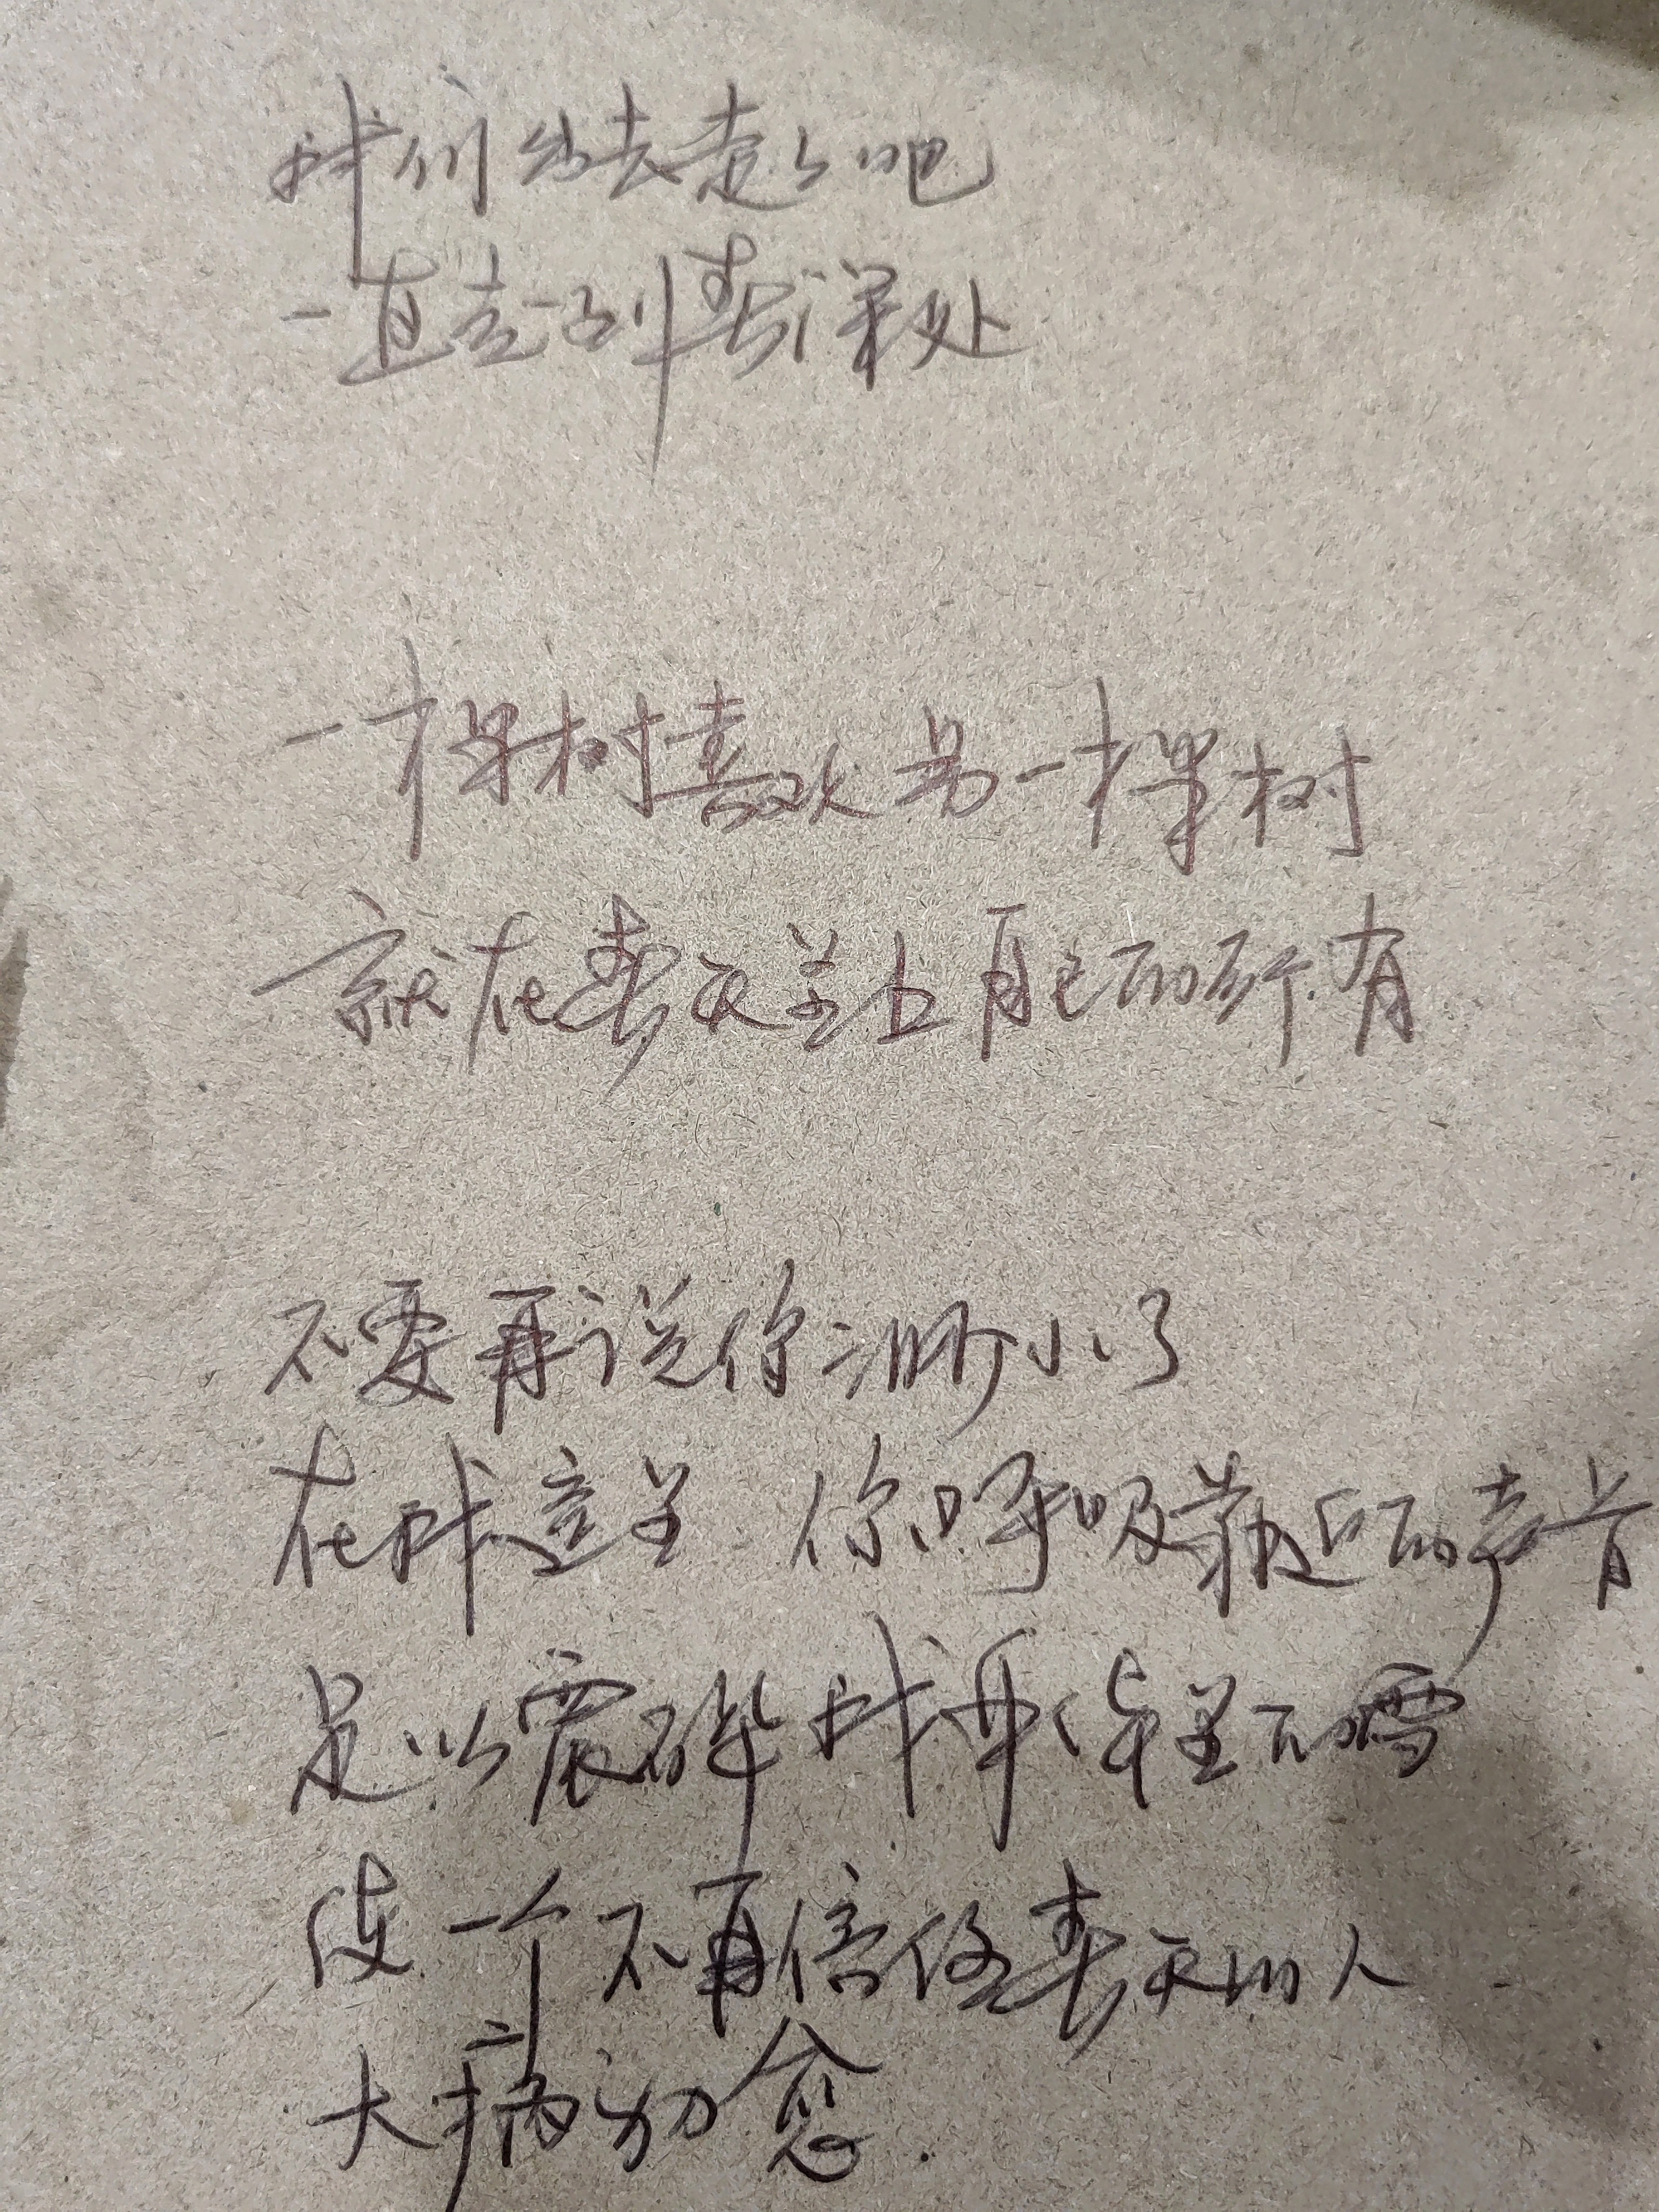 我们出去走走吧
一直走到春深处
一棵树喜欢另一棵树
就在春天盖上自己的所有
不要再说你渺小了
在我这里 你呼吸靠近的声音
足以震碎我身体里的雪
使一个不再信任春天的人
大病初愈